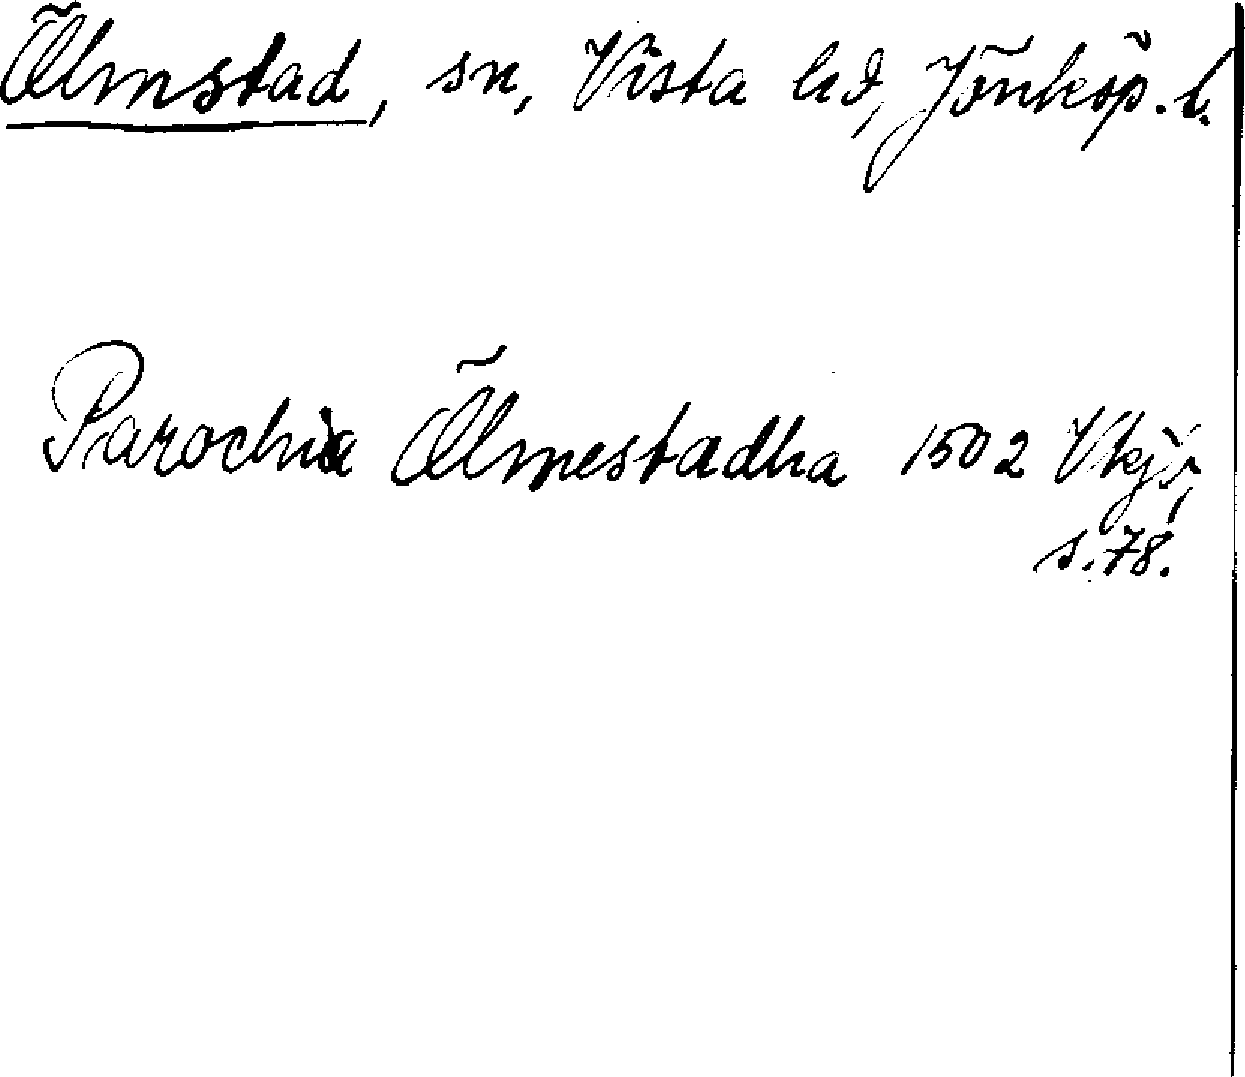 Ölmstad, sn, Vista hd, Jönköp. l.
Parochia Ölmestadha 1502 Vkjr,
s. 78.